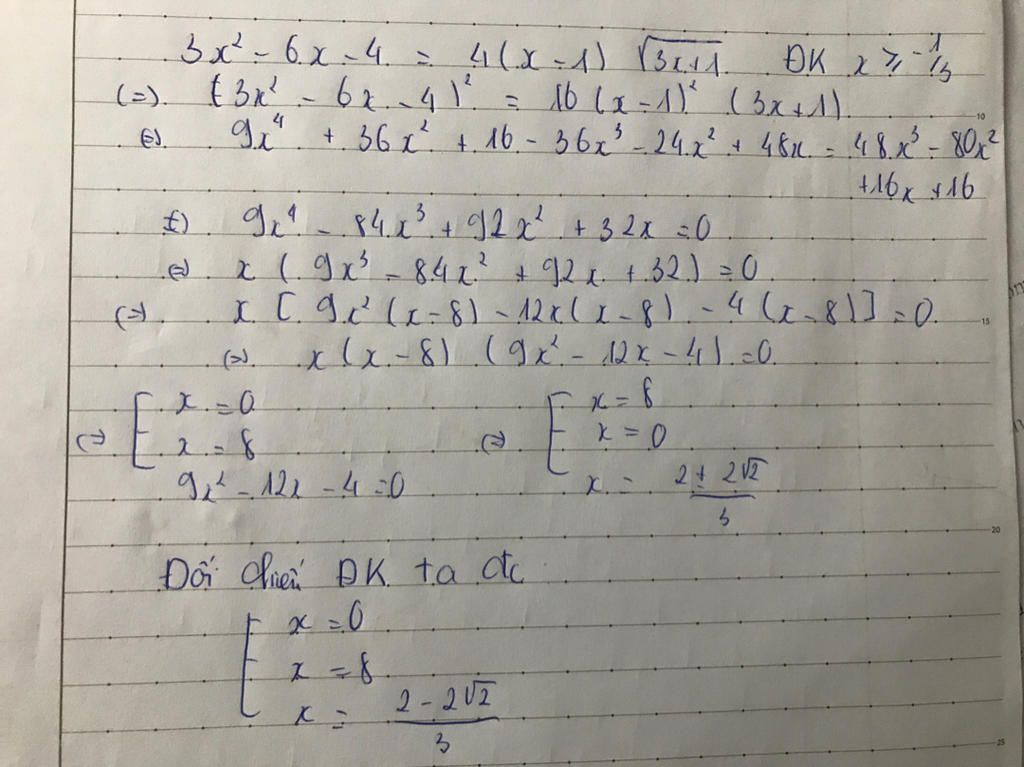 3x² - 6x - 4 = 4(x - 1) √(3x+1) ĐK x ≥ -1/3
(=) (3x² - 6x - 4)² = 16(x - 1)² (3x + 1)
(=) 9x⁴ + 36x² + 16 - 36x³ - 24x² + 48x = 48x³ - 80x²
+16x + 16
(=) 9x⁴ - 84x³ + 92x² + 32x = 0
(=) x (9x³ - 84x² + 92x + 32) = 0
(=) x [9x²(x - 8) - 12x(x - 8) - 4(x - 8)] = 0
(=) x(x - 8) (9x² - 12x - 4) = 0
(=) [ x = 0 (=) [ x = 8
x = 8 x = 0
9x² - 12x - 4 = 0 x = (2 ± 2√2)/3
Đối chiếu ĐK ta đc
[ x = 0
x = 8
x = (2 - 2√2)/3
10
15
20
25